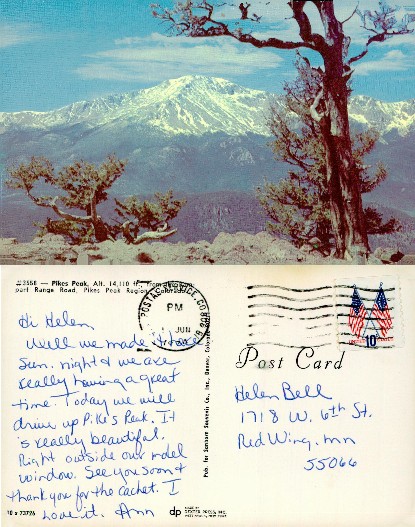 #3558 — Pikes Peak, Alt. 14,110 ft., from
part Range Road, Pikes Peak Region, Colorado.
POSTAL SERVICE, CO
PM
JUN
10c
Post Card
Hi Helen,
Well we made it here
Sun. night & we are
really having a great
time. Today we will
drive up Pike's Peak. It
is really beautiful.
Right outside our motel
window. See you soon &
thank you for the cachet. I
love it. Ann
Helen Bell
1718 W. 6th St.
Red Wing, mn
55066
Pub. by Sanborn Souvenir Co., Inc., Denver, Colorado
10 x 73926
dp
MADE BY
DEXTER PRESS, INC.
WEST NYACK, NEW YORK